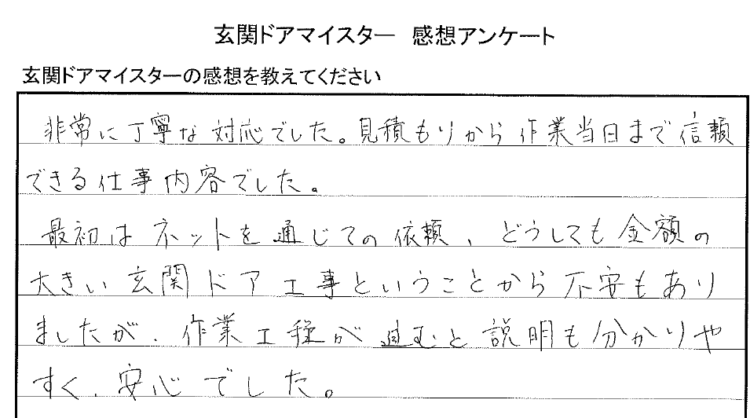 玄関ドアマイスター　感想アンケート
玄関ドアマイスターの感想を教えてください
非常に丁寧な対応でした。見積もりから作業当日まで信頼
できる仕事内容でした。
最初はネットを通じての依頼、どうしても金額の
大きい玄関ドア工事ということから不安もあり
ましたが、作業工程が進むと説明も分かりや
すく、安心でした。